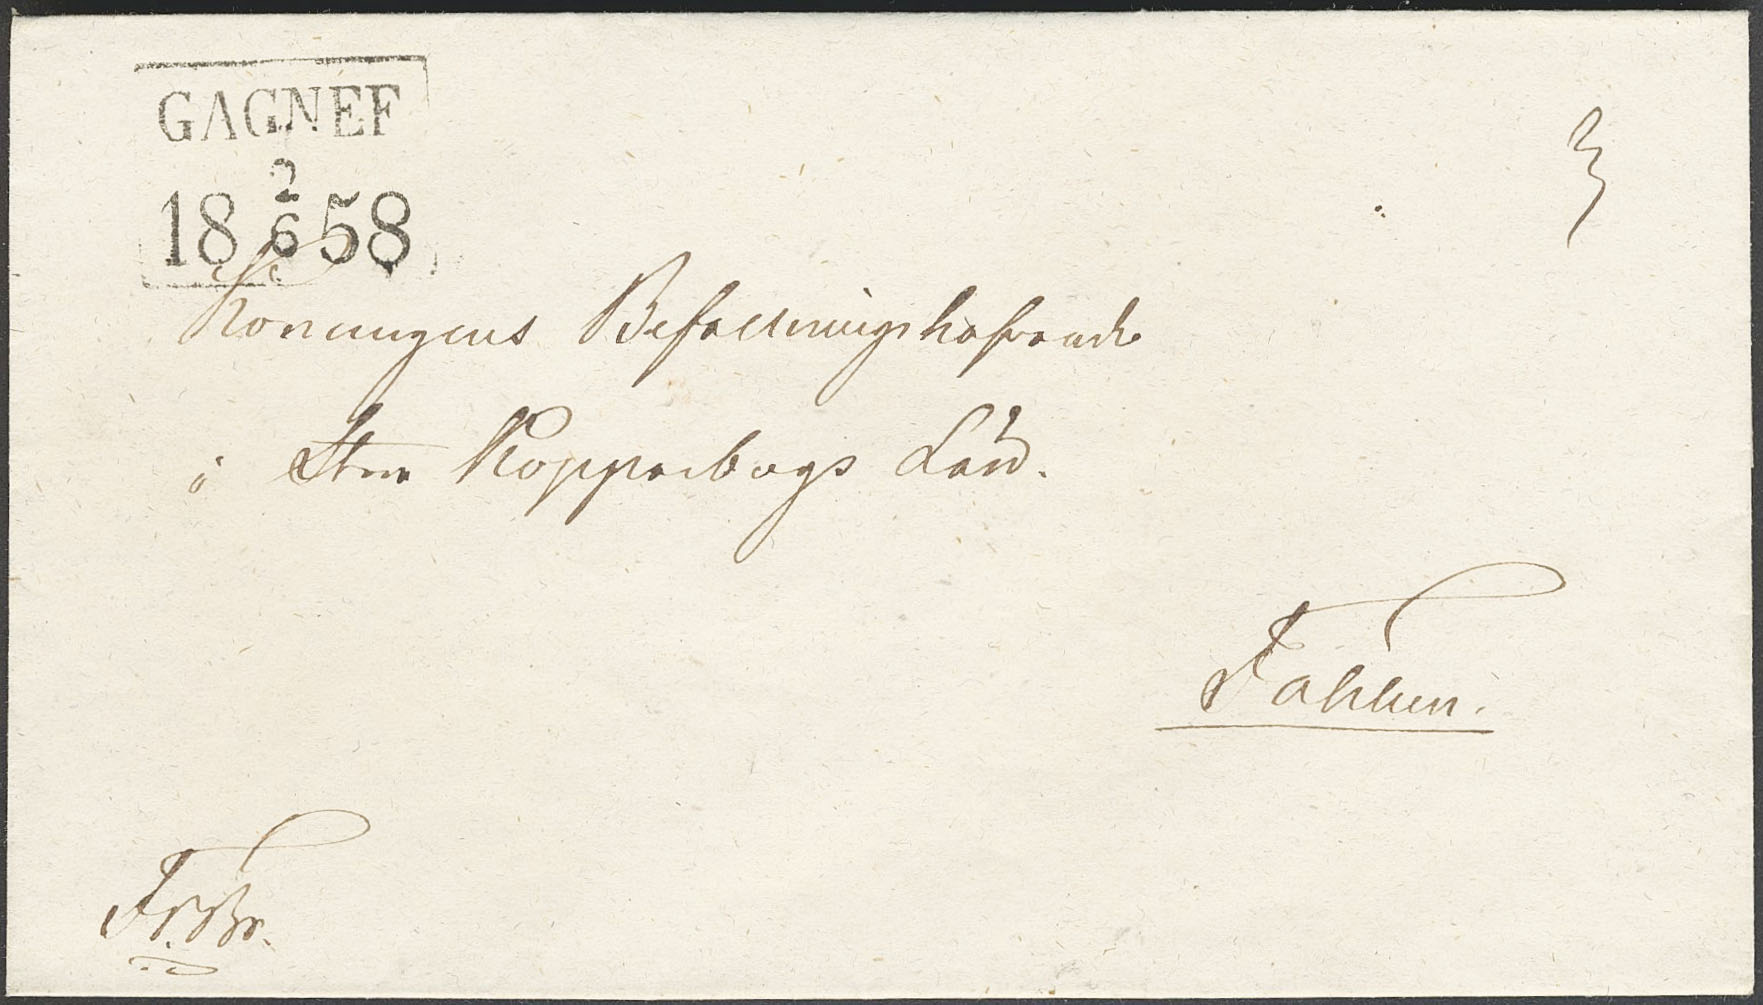 GAGNEF
18 2/6 58
3
Konungens Befallningshafvande
i Stora Kopparbergs Län.
Fahlun.
Fr. Br.